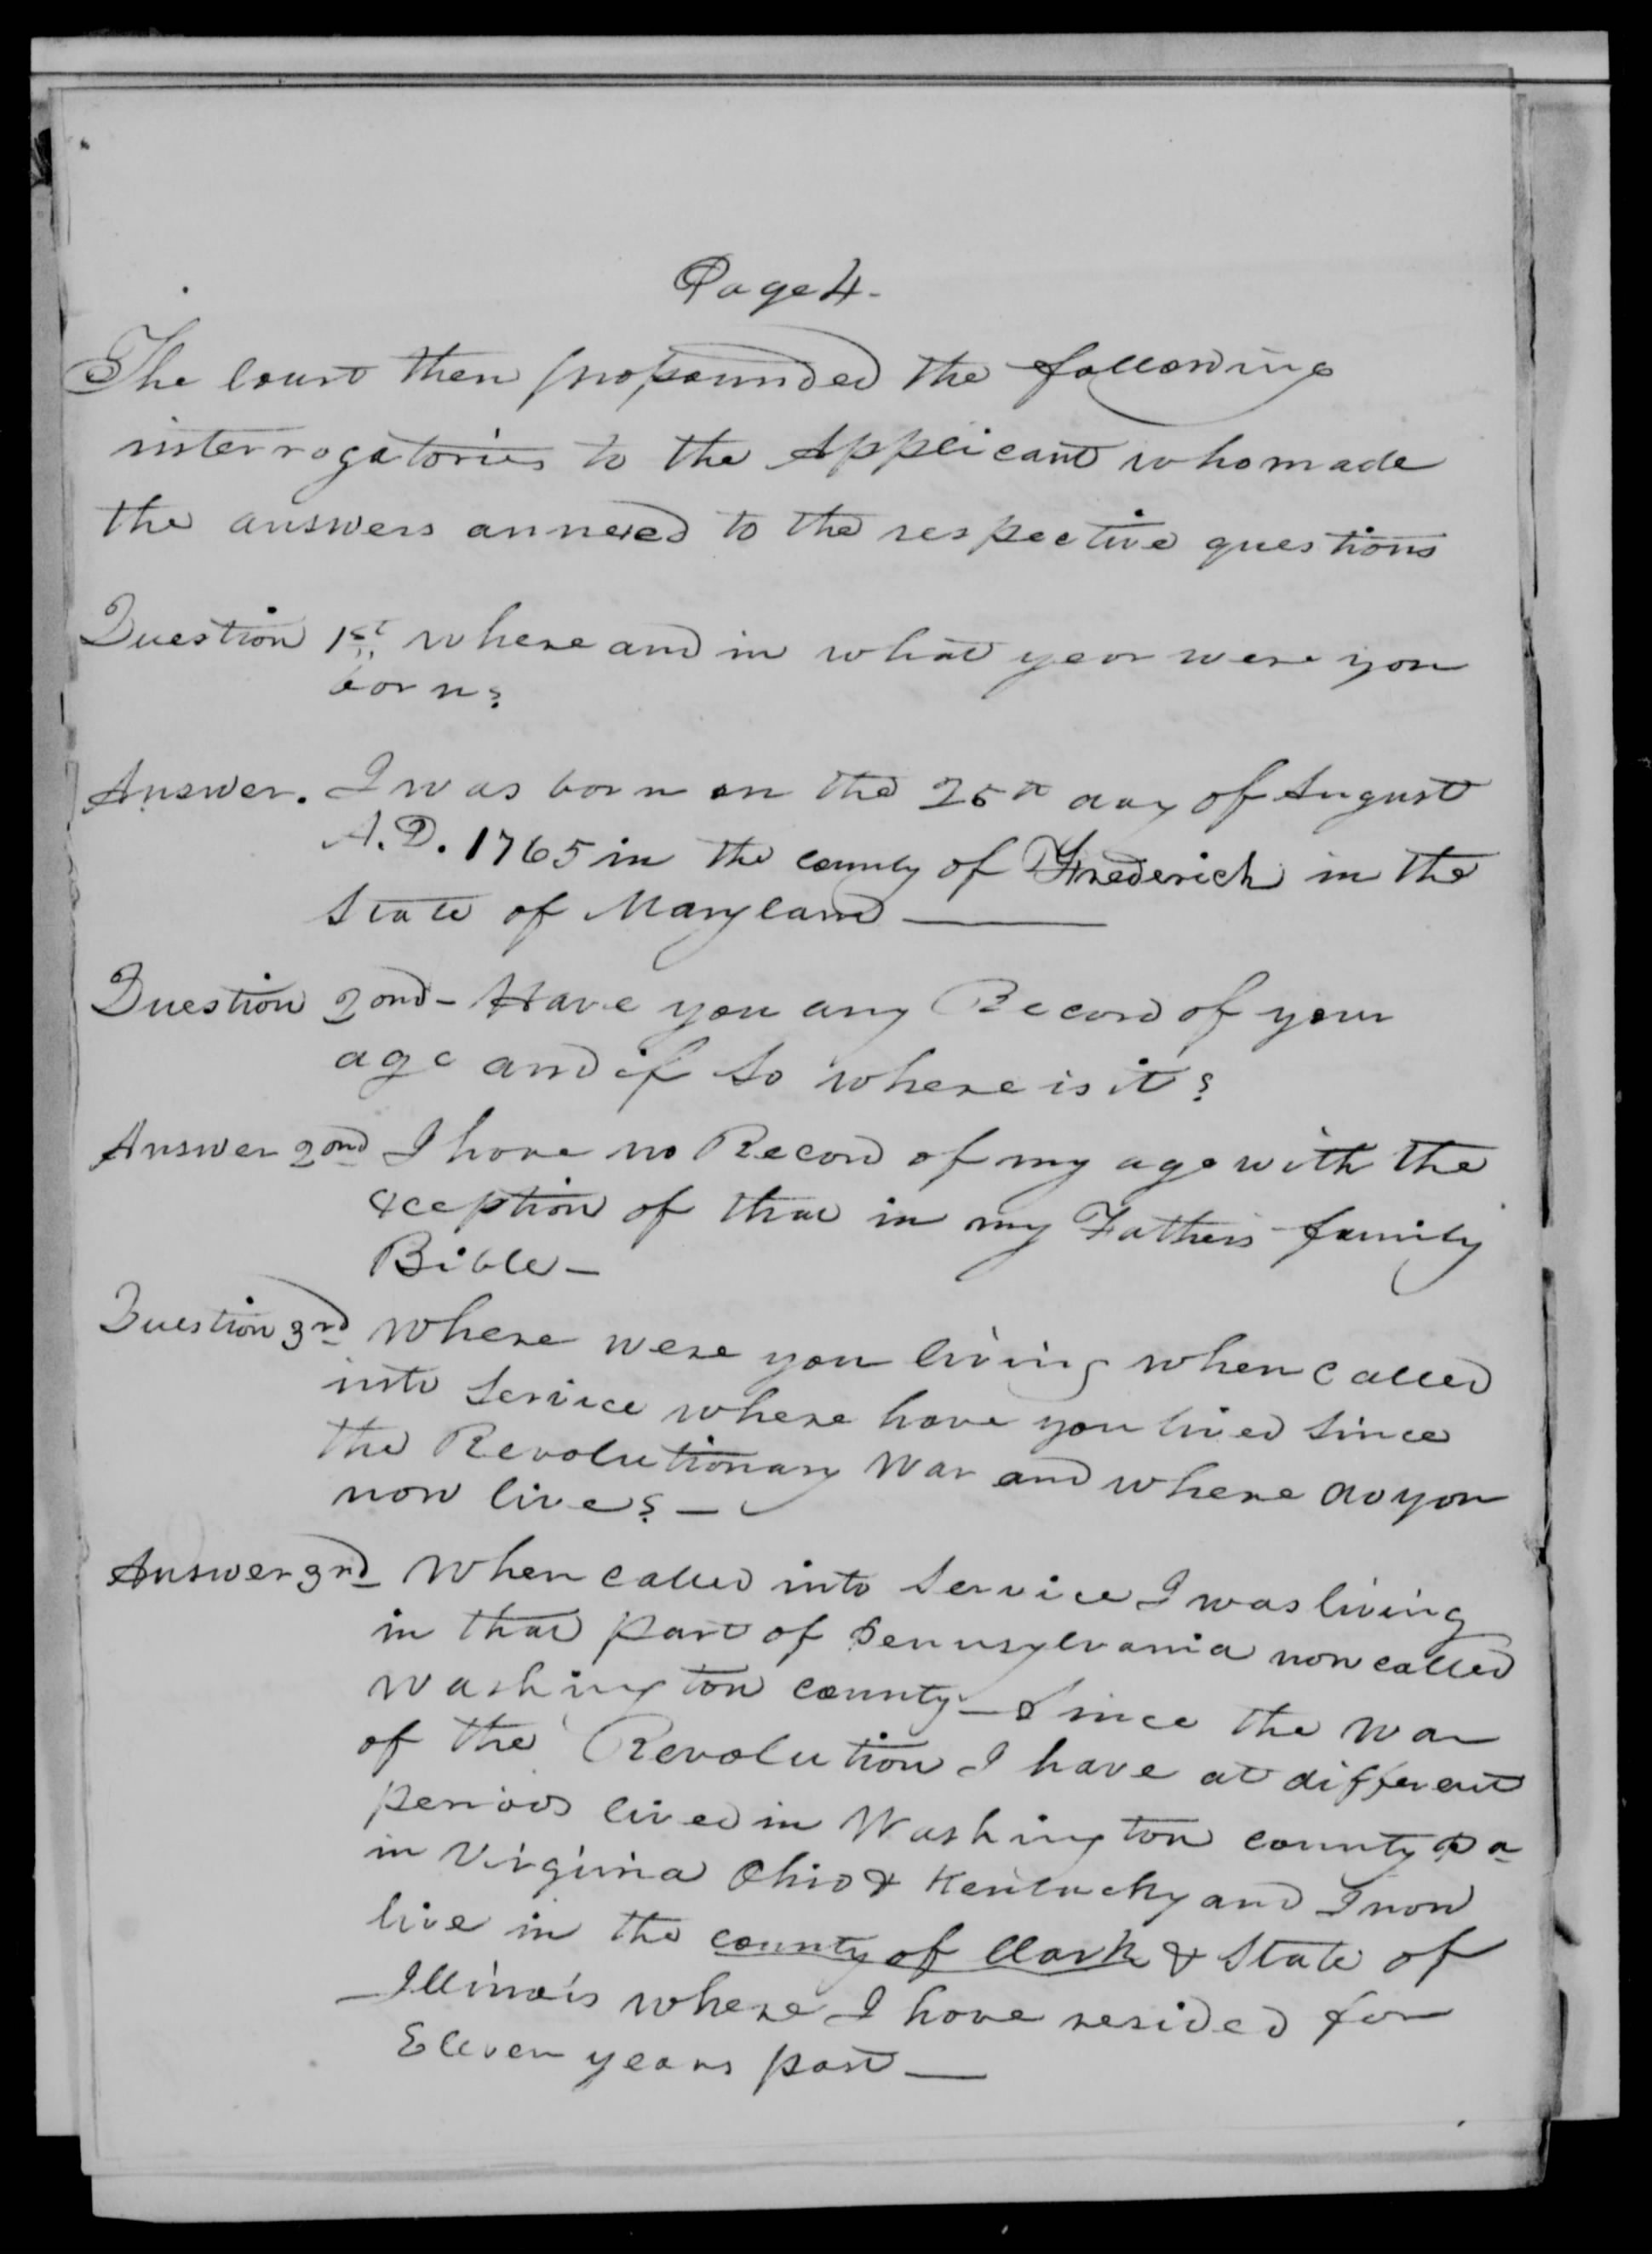 Page 4-
The Court then propounded the following
interrogatories to the Applicant who made
the answers annexed to the respective questions
Question 1st where and in what year were you
born?
Answer. I was born on the 25th day of August
A.D. 1765 in the county of Frederick in the
State of Maryland —
Question 2ond - Have you any Record of your
age and if so where is it?
Answer 2ond I have no Record of my age with the
exception of that in my Fathers family
Bible -
Question 3rd where were you living when called
into Service where have you lived since
the Revolutionary War and where do you
now live? -
Answer 3rd When called into Service I was living
in that part of Pennsylvania now called
Washington county - Since the War
of the Revolution I have at different
periods lived in Washington county Pa
in Virginia Ohio & Kentucky and I now
live in the county of Clark & State of
Illinois where I have resided for
Eleven years past —